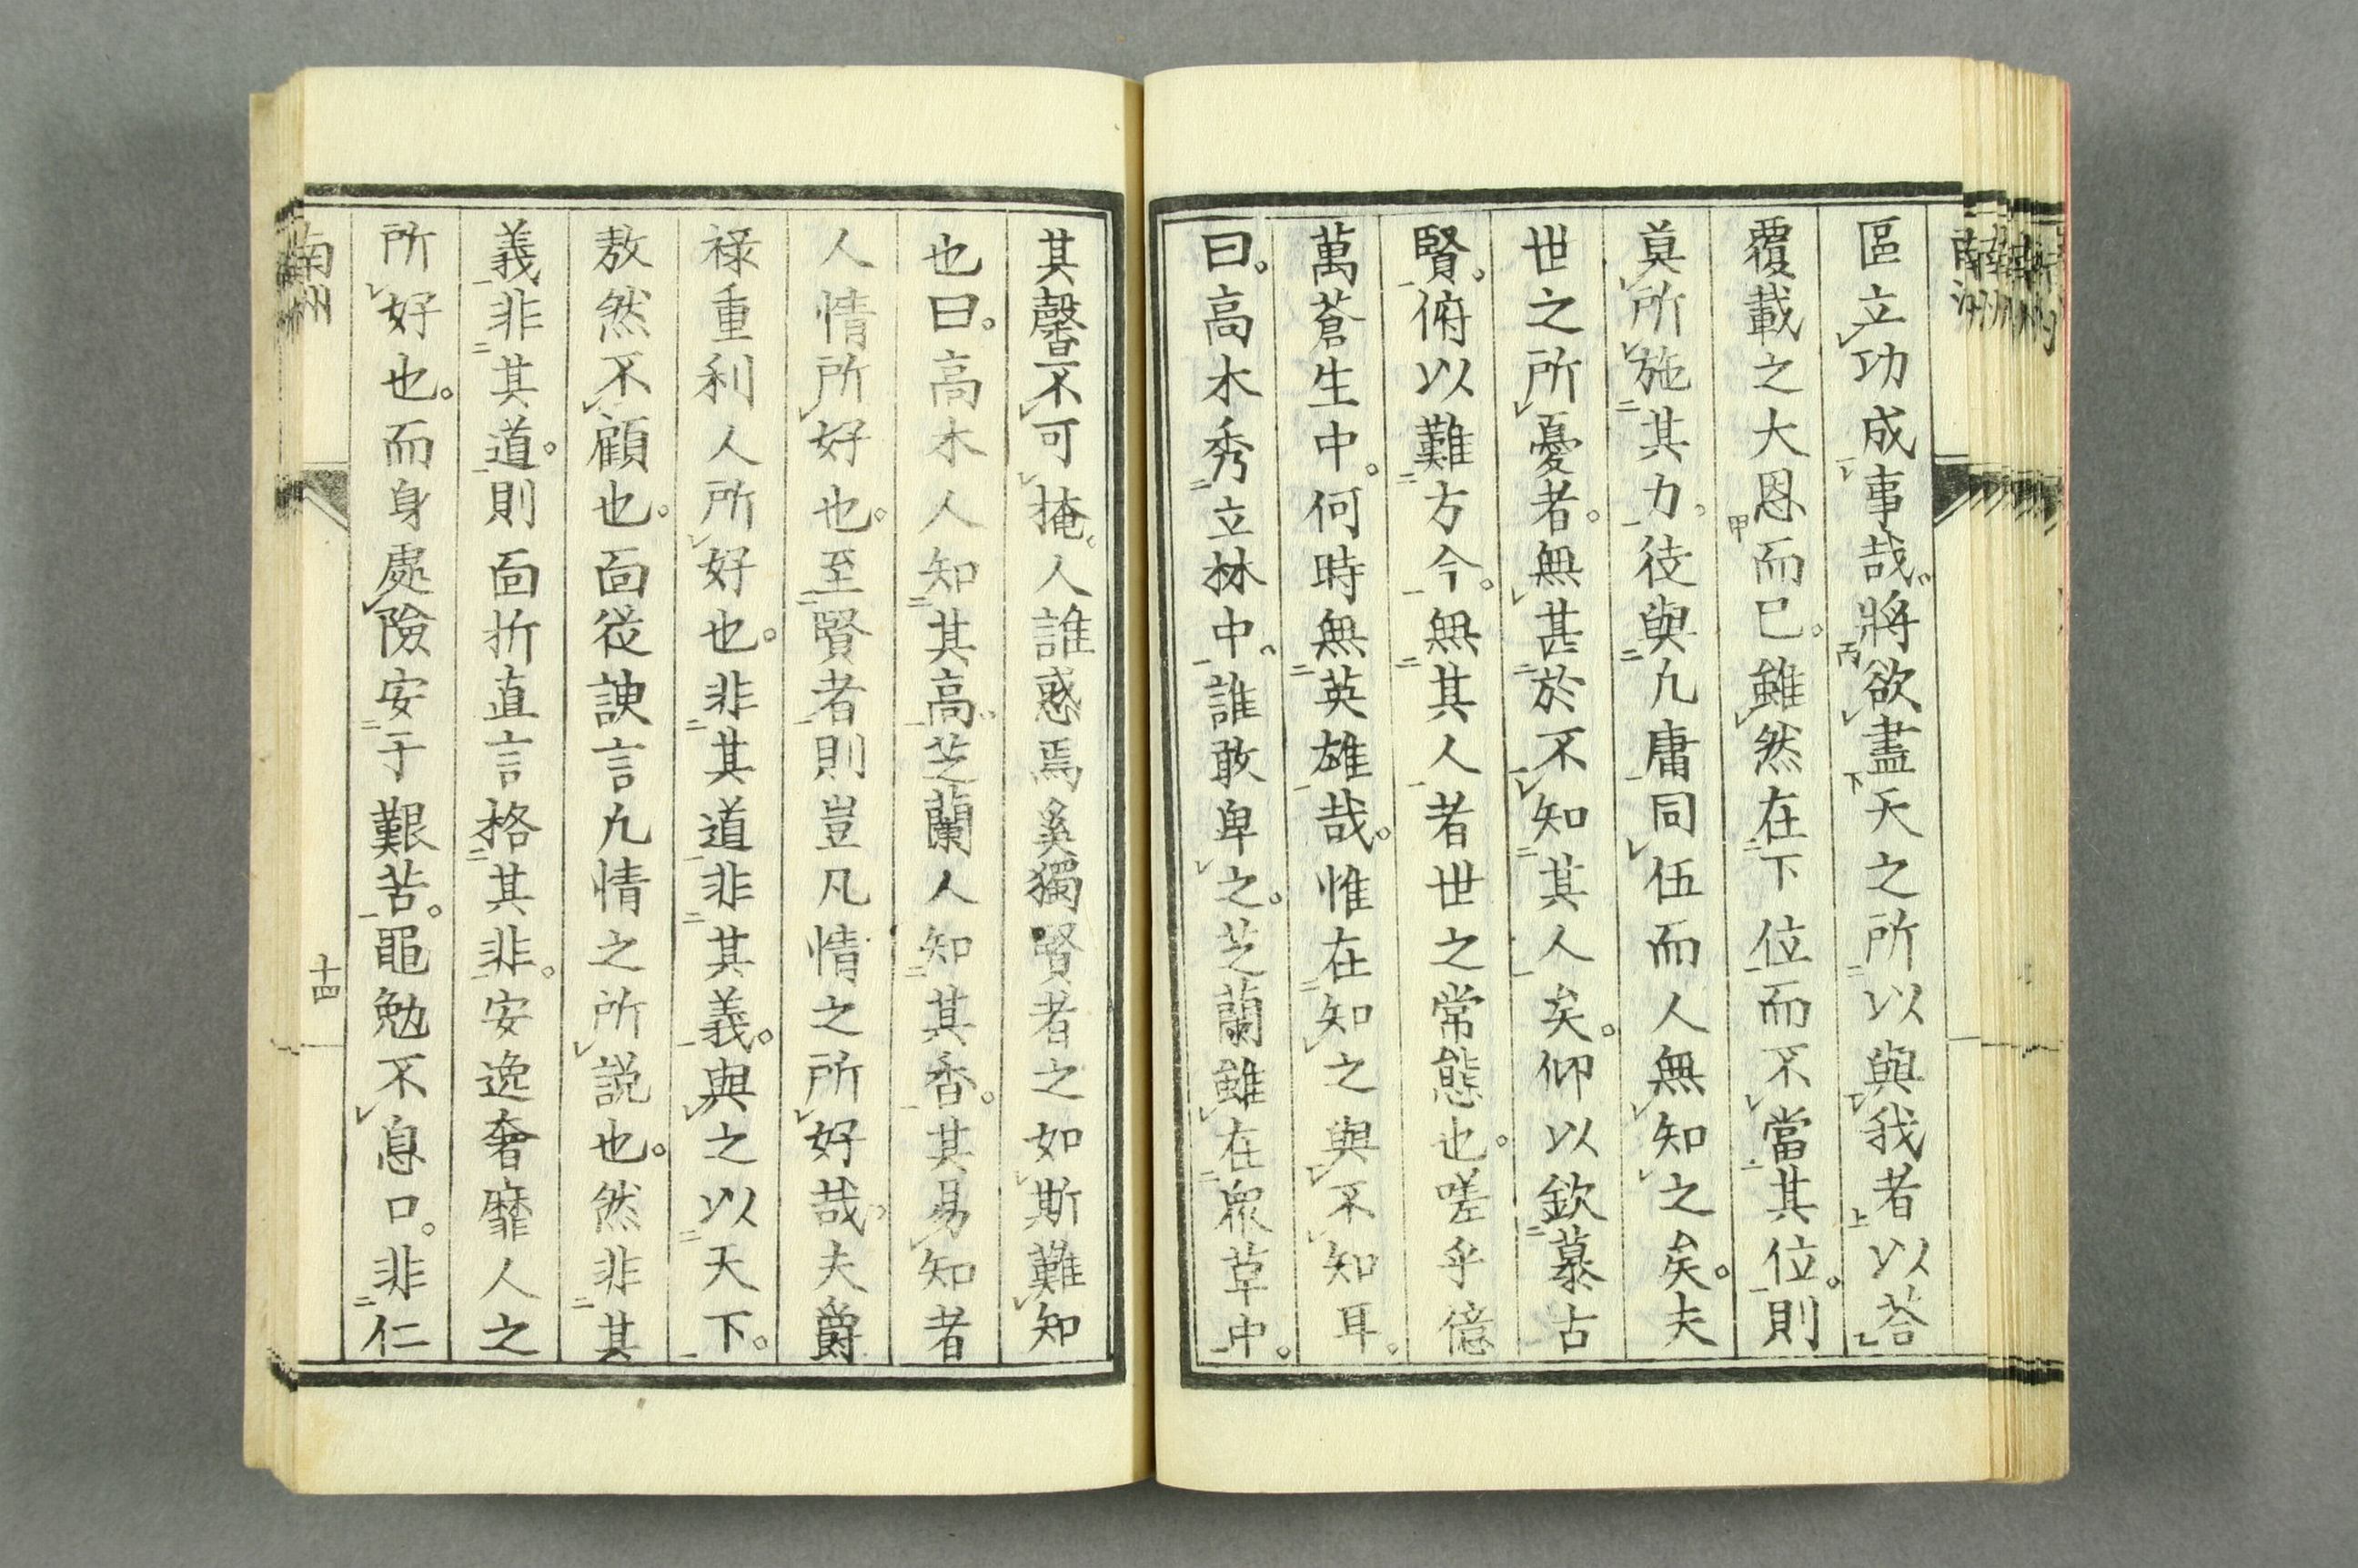 區立功成事哉。將欲盡天之所以與我者以荅
覆載之大恩而已。雖然在下位而不當其位。則
莫所施其力。徒與凢庸同伍而人無知之矣。夫
世之所憂者。無甚於不知其人矣。仰以欽慕古
賢。俯以難方今。無其人者世之常態也。嗟乎億
萬蒼生中。何時無英雄哉。惟在知之與不知耳。
曰。高木秀立林中。誰敢卑之。芝蘭雖在衆草中。
其馨不可掩。人誰惑焉奚獨賢者之如斯難知
也曰。高木人知其高。芝蘭人知其香。其易知者
人情所好也。至賢者則豈凡情之所好哉。夫爵
祿重利人所好也。非其道非其義。與之以天下。
敖然不顧也。面從諛言凢情之所說也。然非其
義非其道。則面折直言格其非。安逸奢靡人之
所好也。而身處險安于艱苦。黽勉不息口。非仁
南州
十四